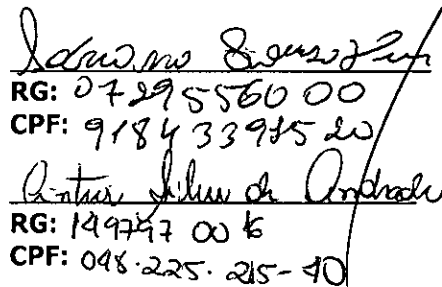 Adriano Souza
RG: 07295560 00
CPF: 918433915 20
Silva de Andrade
RG: 149797 00 16
CPF: 048.225.215-40